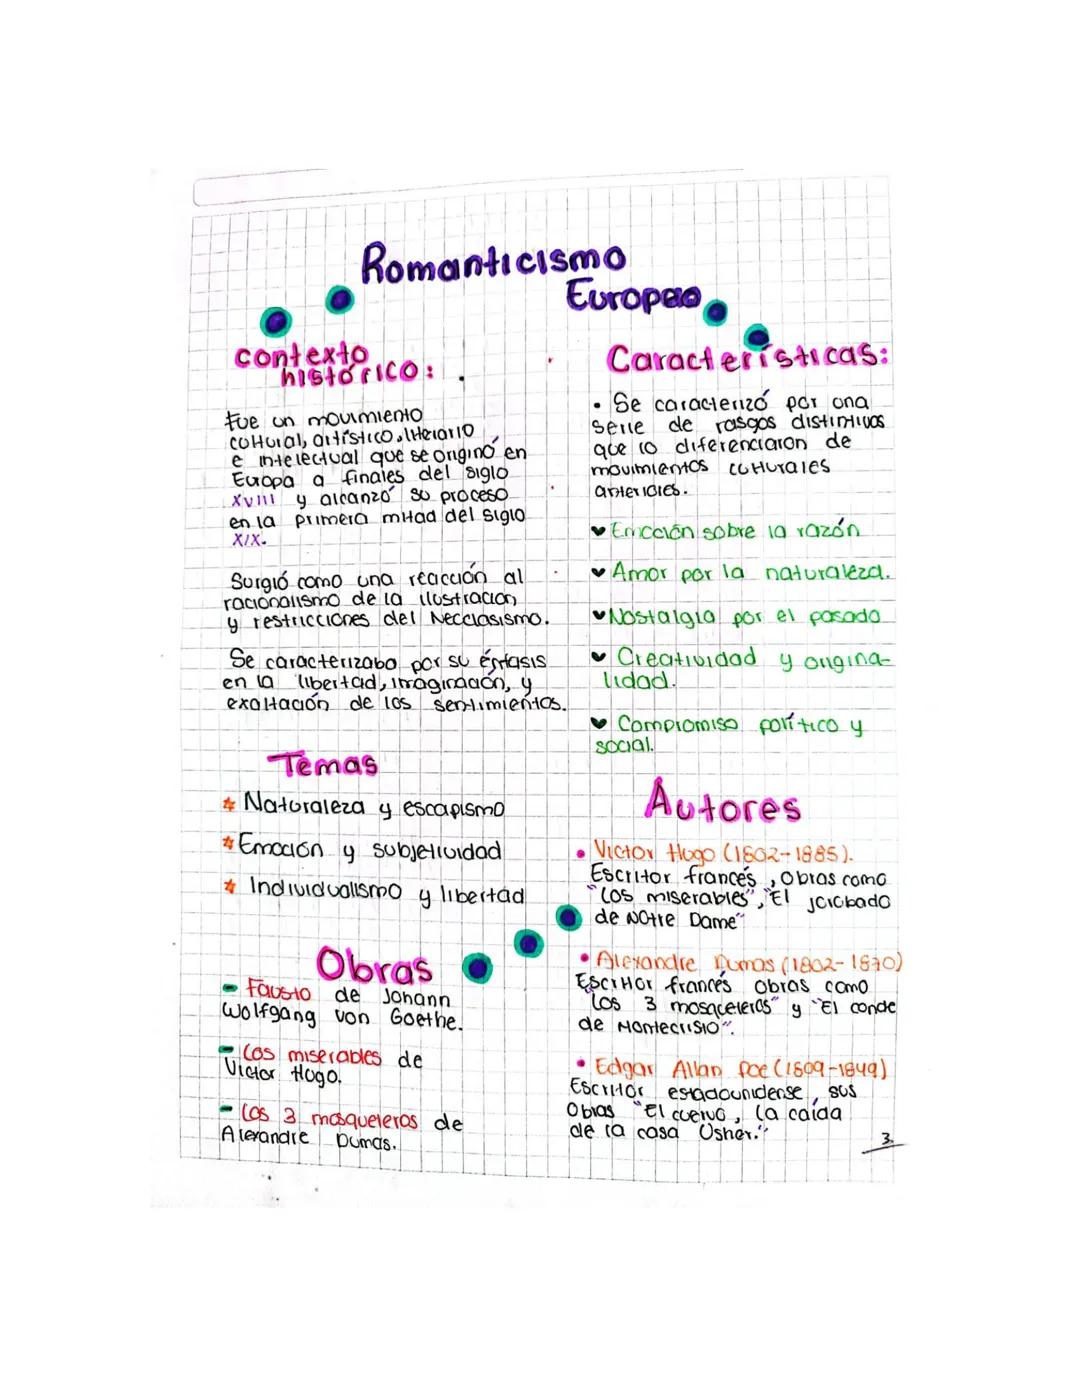 Romanticismo
Europeo
contexto
histórico:
Fue un movimiento
cultural, artístico, literario
e intelectual que se originó en
Europa a finales del siglo
XVIII y alcanzó su proceso
en la primera mitad del siglo
XIX.
Surgió como una reacción al
racionalismo de la ilustración
y restricciones del Neoclasismo.
Se caracterizaba por su énfasis
en la libertad, imaginación, y
exaltación de los sentimientos.
Temas
Naturaleza y escapismo
Emoción y subjetividad
Individualismo y libertad
Obras
- Fausto de Johann
Wolfgang von Goethe.
- Los miserables de
Victor Hugo.
- Los 3 mosqueteros de
Alexandre Dumas.
Características:
• Se caracterizó por una
serie de rasgos distintivos
que lo diferenciaron de
movimientos culturales
anteriores.
♥ Emoción sobre la razón
♥ Amor por la naturaleza.
♥ Nostalgia por el pasado
♥ Creatividad y origina-
lidad.
♥ Compromiso político y
social.
Autores
• Victor Hugo (1802-1885).
Escritor francés, obras como
"Los miserables", "El jorobado
de Notre Dame"
• Alexandre Dumas (1802-1870)
Escritor francés obras como
"Los 3 mosqueteros" y "El conde
de Montecristo".
• Edgar Allan Poe (1809-1849)
Escritor estadounidense, sus
Obras "El cuervo, La caída
de la casa Usher."
3.